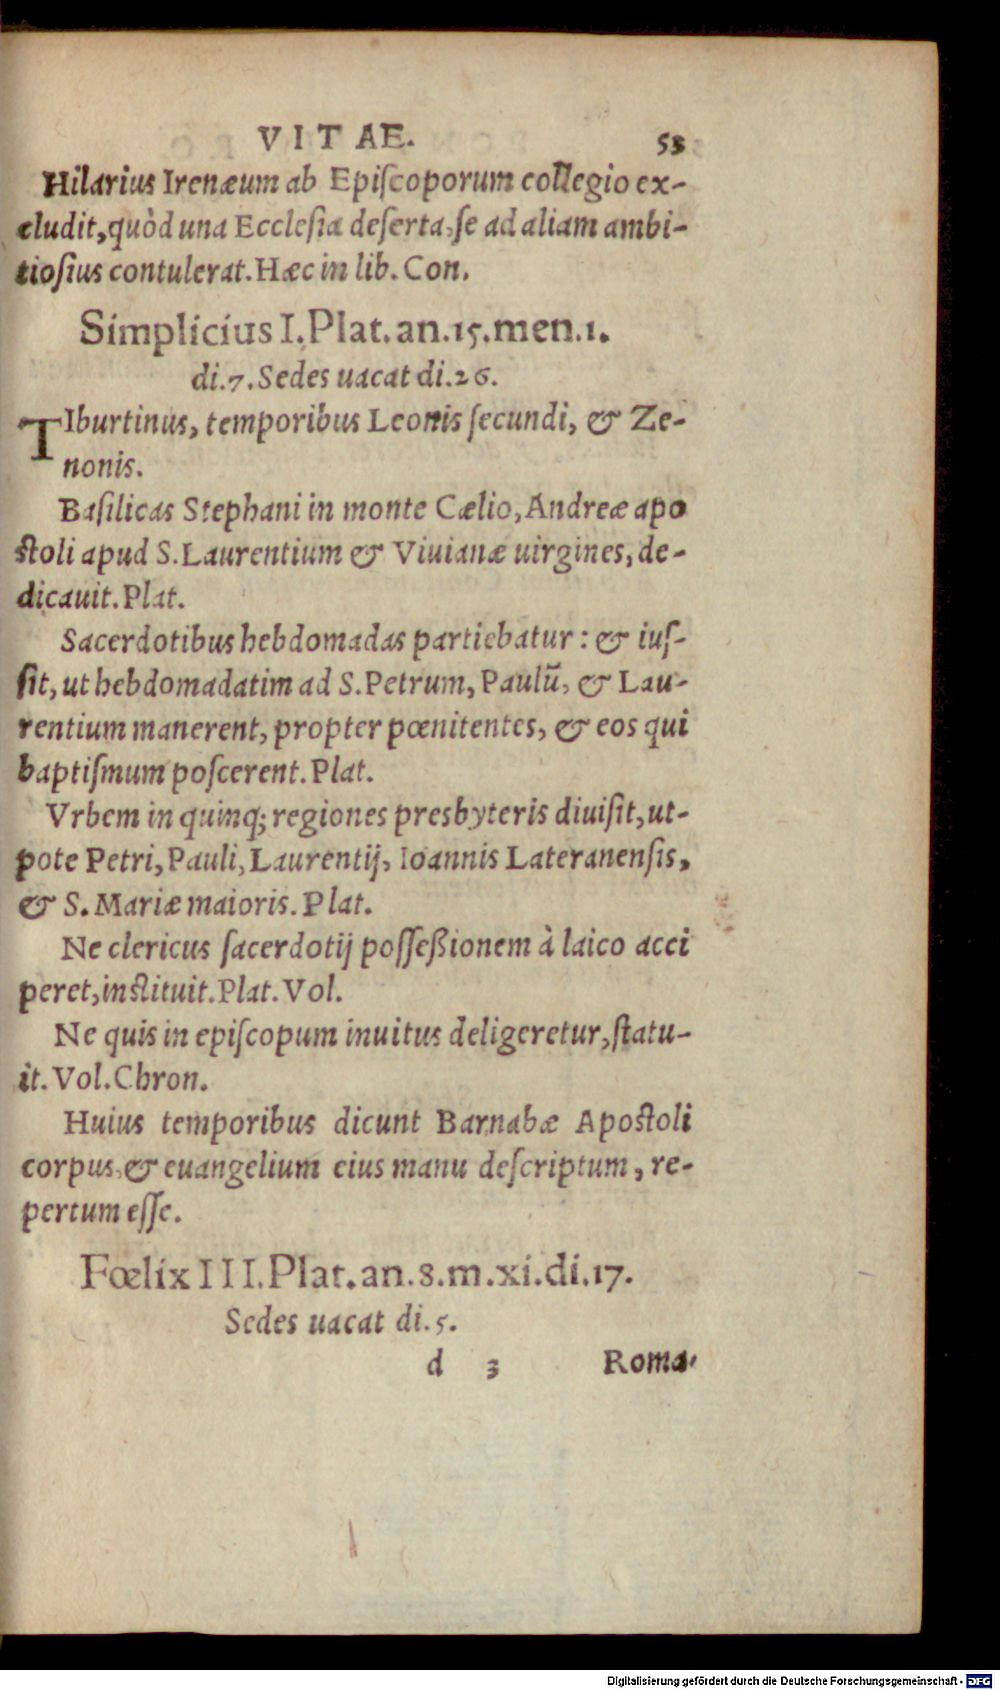 VITAE. 53
Hilarius Irenæum ab Epiſcoporum collegio ex-
cludit, quòd una Eccleſia deſerta, ſe ad aliam ambi-
tioſius contulerat. Hæc in lib. Con.
Simplicius I. Plat. an. 15. men. 1.
di. 7. Sedes uacat di. 26.
TIburtinus, temporibus Leonis ſecundi, & Ze-
nonis.
Baſilicas Stephani in monte Cælio, Andreæ apo
ſtoli apud S. Laurentium & Viuianæ uirgines, de-
dicauit. Plat.
Sacerdotibus hebdomadas partiebatur: & iuſ-
ſit, ut hebdomadatim ad S. Petrum, Paulũ, & Lau-
rentium manerent, propter pœnitentes, & eos qui
baptiſmum poſcerent. Plat.
Vrbem in quinq; regiones presbyteris diuiſit, ut-
pote Petri, Pauli, Laurentij, Ioannis Lateranenſis,
& S. Mariæ maioris. Plat.
Ne clericus ſacerdotij poſſeßionem à laico acci
peret, inſtituit. Plat. Vol.
Ne quis in epiſcopum inuitus deligeretur, ſtatu-
it. Vol. Chron.
Huius temporibus dicunt Barnabæ Apoſtoli
corpus, & euangelium eius manu deſcriptum, re-
pertum eſſe.
Fœlix III. Plat. an. 8. m. xi. di. 17.
Sedes uacat di. 5.
d 3 Roma-
Digitalisierung gefördert durch die Deutsche Forschungsgemeinschaft - DFG